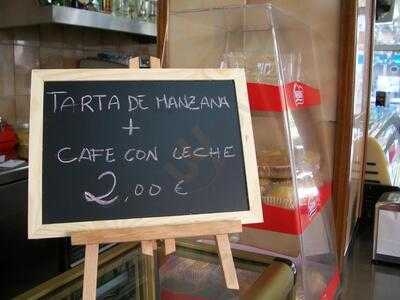 TARTA DE MANZANA
+
CAFE CON LECHE
2,00 €